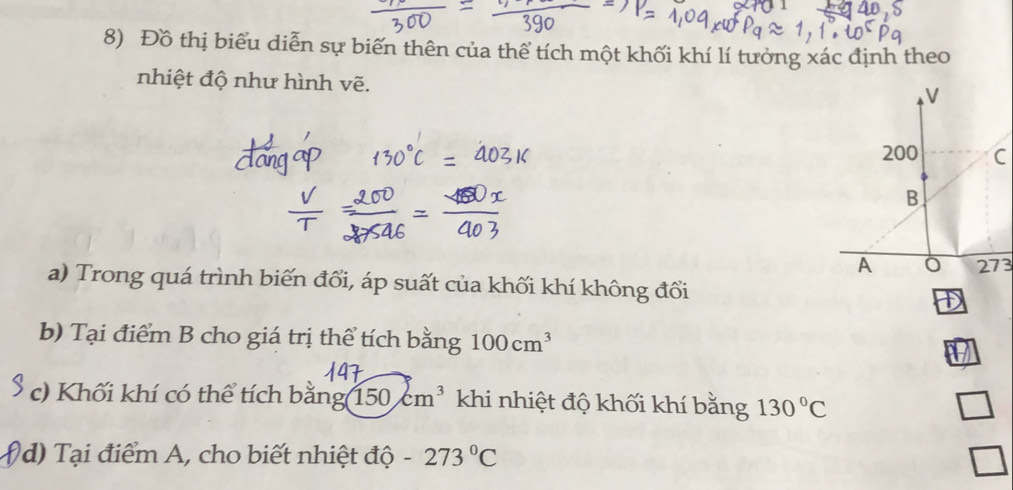 300 = 390 => P = 1,09 x 10⁵ Pa ≈ 1,1 . 10⁵ Pa 40,5
8) Đồ thị biểu diễn sự biến thên của thể tích một khối khí lí tưởng xác định theo
nhiệt độ như hình vẽ.
V
đẳng áp 130°C = 403K
200 C
V/T = 200/546 = x/403
B
A O 273
a) Trong quá trình biến đổi, áp suất của khối khí không đổi Đ
b) Tại điểm B cho giá trị thể tích bằng 100 cm³ Đ
147
S c) Khối khí có thể tích bằng 150 cm³ khi nhiệt độ khối khí bằng 130 ⁰C
Đ d) Tại điểm A, cho biết nhiệt độ - 273 ⁰C